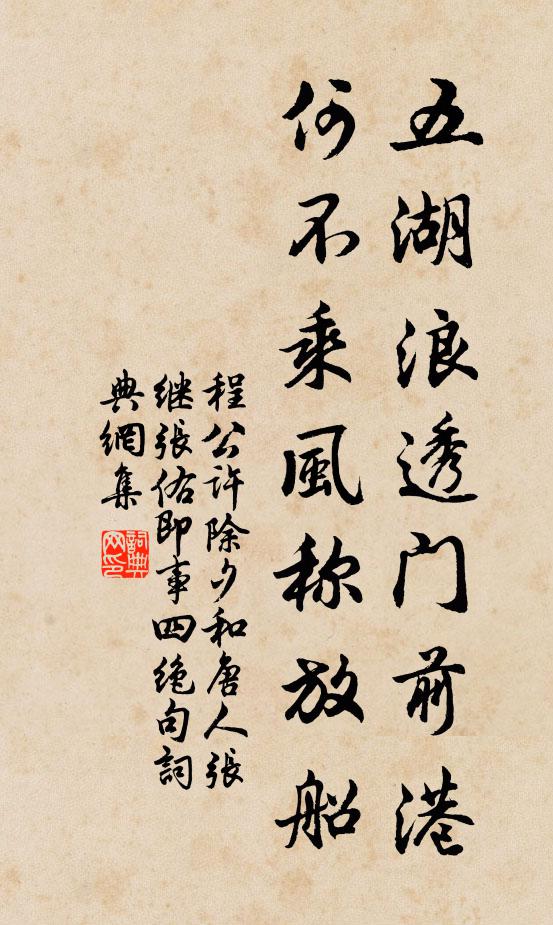 五湖浪透门前港
何不乘風称放船
程公许除夕和唐人張
继張佑即事四絶句詞
典網集
詞典网印